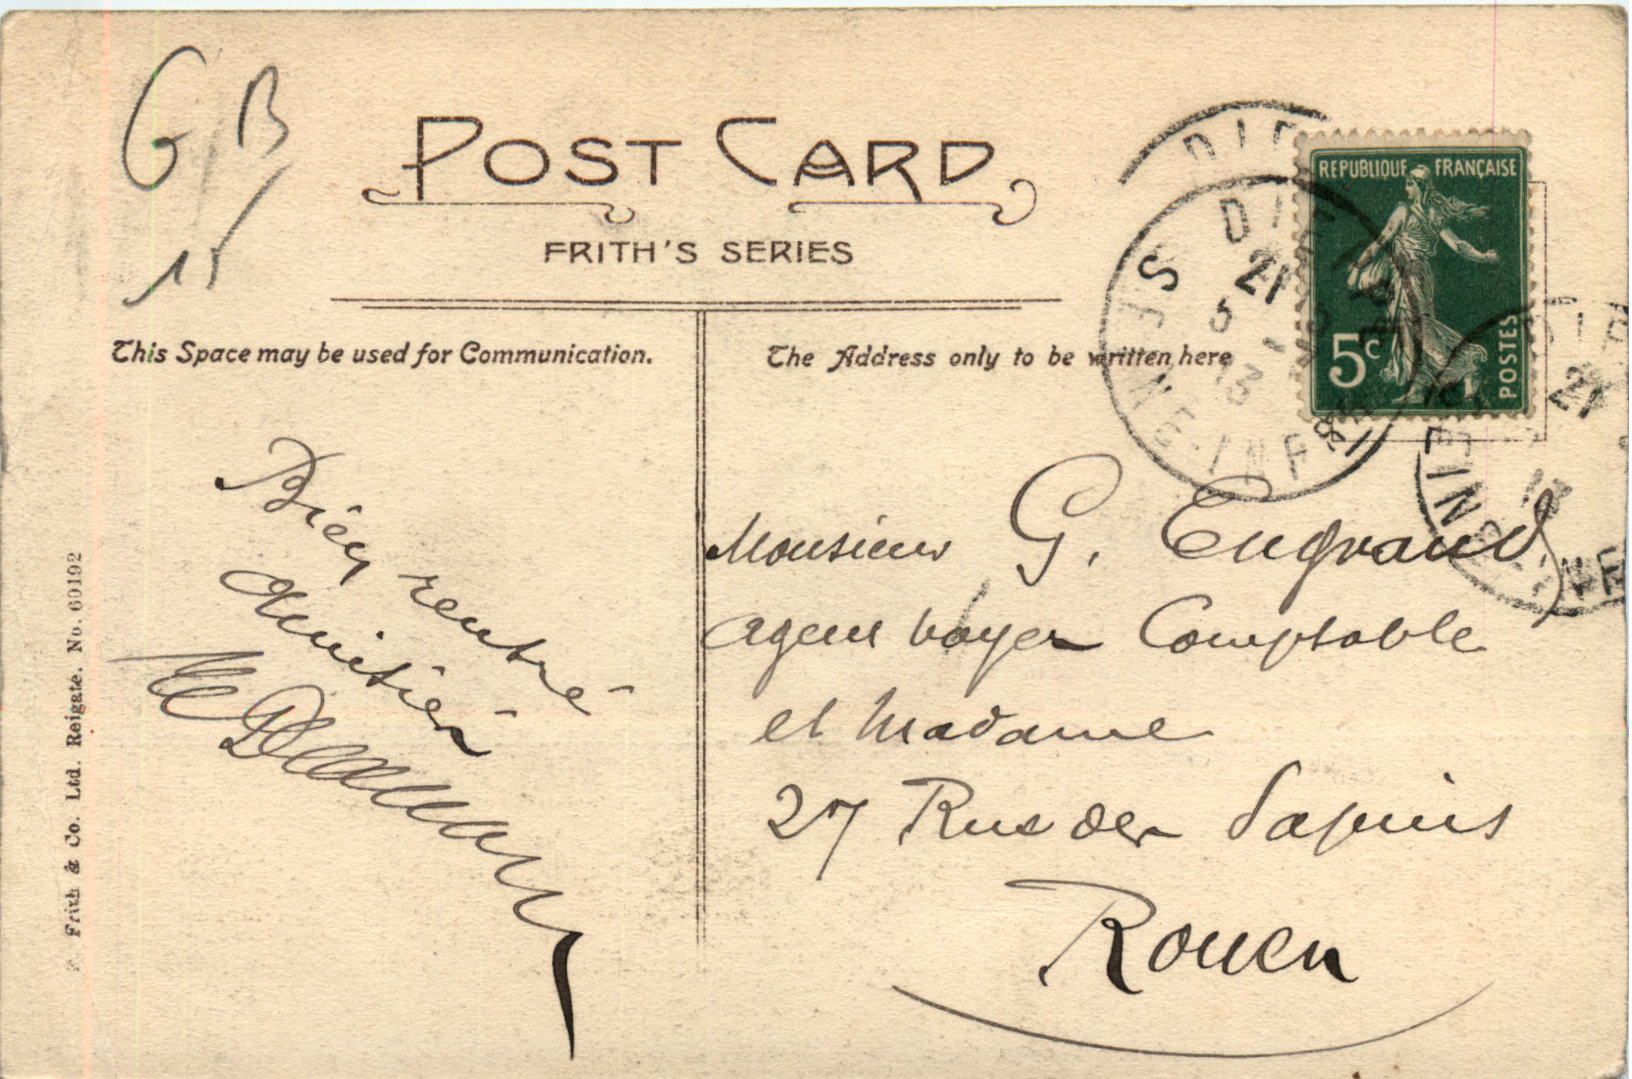 G B
15
POST CARD
FRITH'S SERIES
This Space may be used for Communication.
The Address only to be written here
REPUBLIQUE FRANÇAISE
5c
POSTES
DIEPPE
21
5
13
SEINE-INFRE
DIE
21
13
Bien rentré
amitiés
Monsieur G. Engrand
agent voyer Comptable
et Madame
27 Rue des Sapins
Rouen
F. Frith & Co. Ltd. Reigate. No. 60192